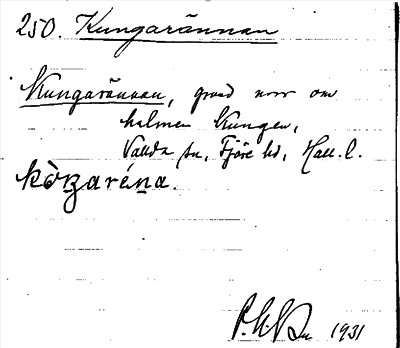 250. Kungarännan
Kungarännan, grund norr om
holmen Kungen,
Vallda sn, Fjäre hd, Hall. l.
kòŋaréna.
1931